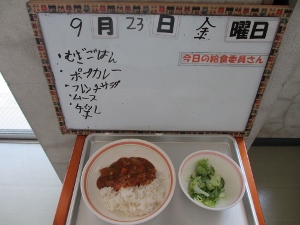 9月23日 金曜日
今日の給食委員さん
・むぎごはん
・ポークカレー
・フレンチサラダ
・ムース
・牛乳